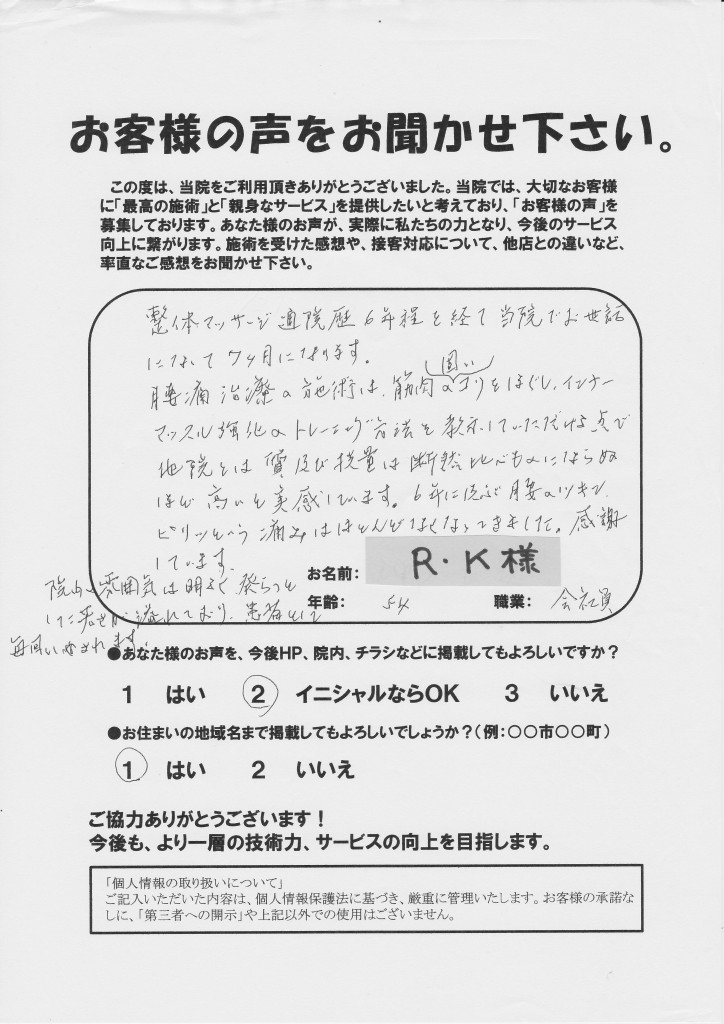 お客様の声をお聞かせ下さい。
この度は、当院をご利用頂きありがとうございました。当院では、大切なお客様
に「最高の施術」と「親身なサービス」を提供したいと考えており、「お客様の声」を
募集しております。あなた様のお声が、実際に私たちの力となり、今後のサービス
向上に繋がります。施術を受けた感想や、接客対応について、他店との違いなど、
率直なご感想をお聞かせ下さい。
整体マッサージ通院歴6年程を経て当院でお世話
になって7ヶ月になります。
腰痛治療の施術は、筋肉の固いコリをほぐし、インナー
マッスル強化のトレーニング方法を教示していただける点で
他院とは質及び技量は断然比べものにならぬ
ほど高いと実感しています。6年に及ぶ腰のツキン、
ピリッという痛みはほとんどなくなってきました。感謝
しています。
院内の雰囲気は明るく溌らつと
した若さが溢れており、患者として
毎回いやされます。
お名前: R・K様
年齢: 54 職業: 会社員
●あなた様のお声を、今後HP、院内、チラシなどに掲載してもよろしいですか?
1 はい 2 イニシャルならOK 3 いいえ
●お住まいの地域名まで掲載してもよろしいでしょうか?(例:○○市○○町)
1 はい 2 いいえ
ご協力ありがとうございます!
今後も、より一層の技術力、サービスの向上を目指します。
「個人情報の取り扱いについて」
ご記入いただいた内容は、個人情報保護法に基づき、厳重に管理いたします。お客様の承諾な
しに、「第三者への開示」や上記以外での使用はございません。